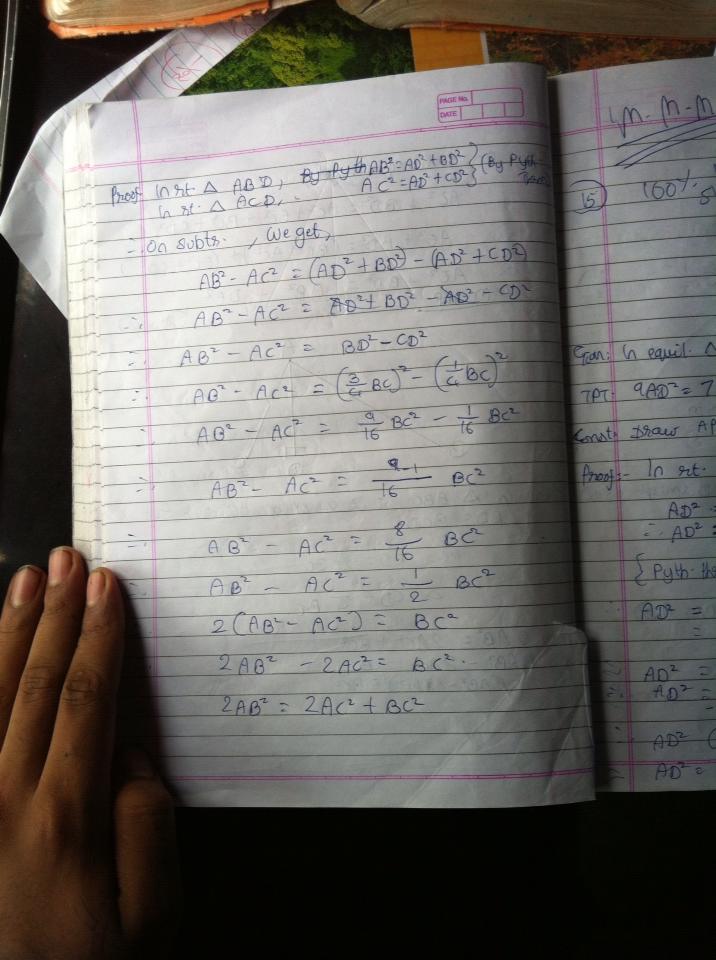 PAGE No.
DATE
Proof:- In rt. △ ABD, AB² = AD² + BD² } (By Pyth.
In rt. △ ACD, AC² = AD² + CD² }
∴ On subtr., We get,
AB² - AC² = (AD² + BD²) - (AD² + CD²)
∴ AB² - AC² = AD² + BD² - AD² - CD²
∴ AB² - AC² = BD² - CD²
∴ AB² - AC² = (3/4 BC)² - (1/4 BC)²
∴ AB² - AC² = 9/16 BC² - 1/16 BC²
∴ AB² - AC² = 9-1/16 BC²
∴ AB² - AC² = 8/16 BC²
∴ AB² - AC² = 1/2 BC²
2(AB² - AC²) = BC²
2AB² - 2AC² = BC².
2AB² = 2AC² + BC²
15
Gan: In equil. △
TPT- 9AD² = 7
Const: Draw AP
Proof:- In rt.
AD²
∴ AD² =
{ Pyth. the
AD² =
=
∴ AD² =
∴ AD² =
=
∴ AD² (
∴ AD² =